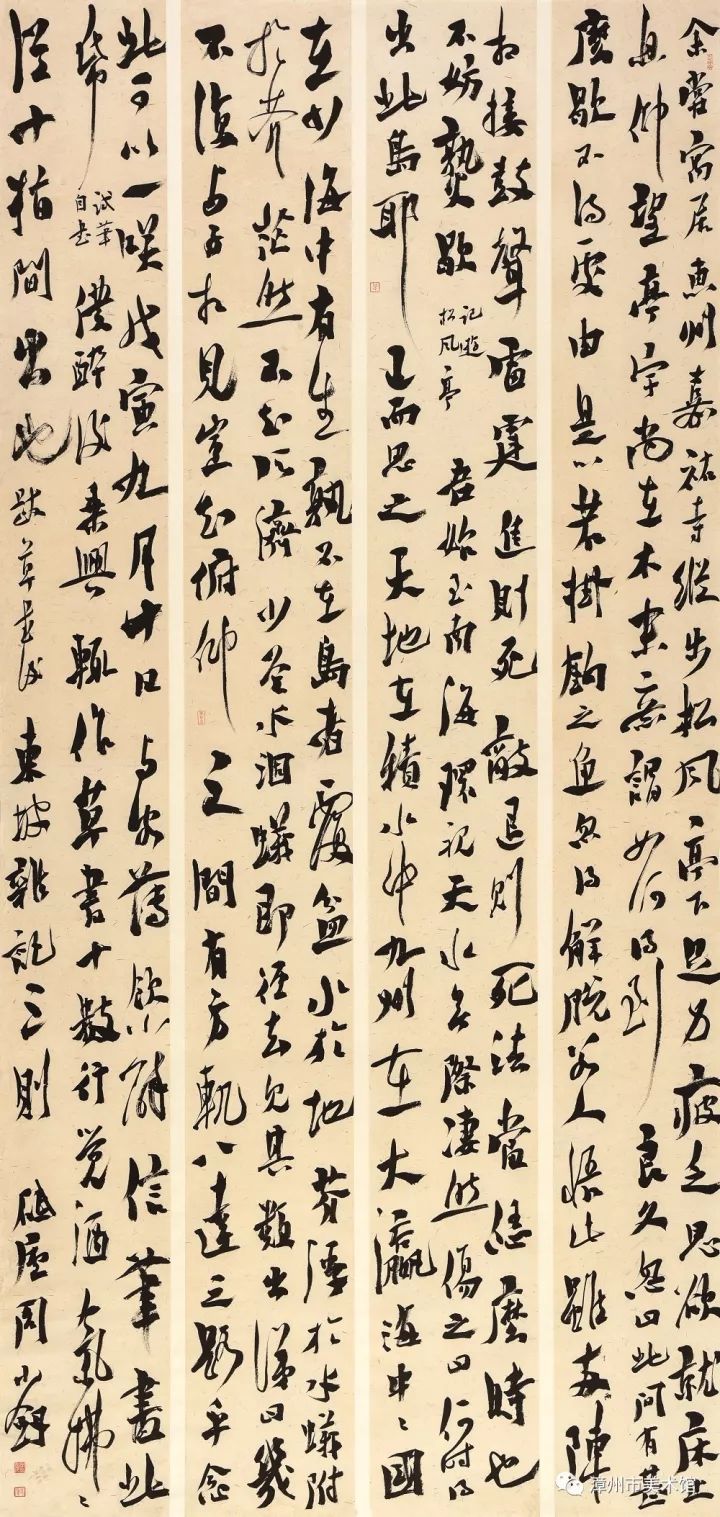 余嘗寓居惠州嘉祐寺縱步松風亭下足力疲乏思欲就床止
息仰望亭宇尚在木末意謂如何得到良久忽曰此间有甚
麼歇不得處由是心若掛鉤之魚忽得解脫若人悟此雖兵陣
相接鼓聲雷霆進則死敵退則死法當恁麼時也
不妨熟歇 記遊松風亭 吾始至南海環視天水無際淒然傷之曰何时得
出此島耶已而思之天地在積水中九州在大瀛海中中國
在少海中有生孰不在島者覆盆水於地芥浮於水蟻附
於芥茫然不知所濟少答水涸蟻即徑去見其類出涕曰幾
不復與子相見豈知俯仰之間有方軌八達之路乎念
此可以一咲戊寅九月十二日與客薄飲小醉信筆書此
帋 試筆自書 僕醉後乘興輒作草書十數行覺酒氣拂拂
從十指間出也 跋草書後 東坡雜記三則 周小
漳州市美术馆